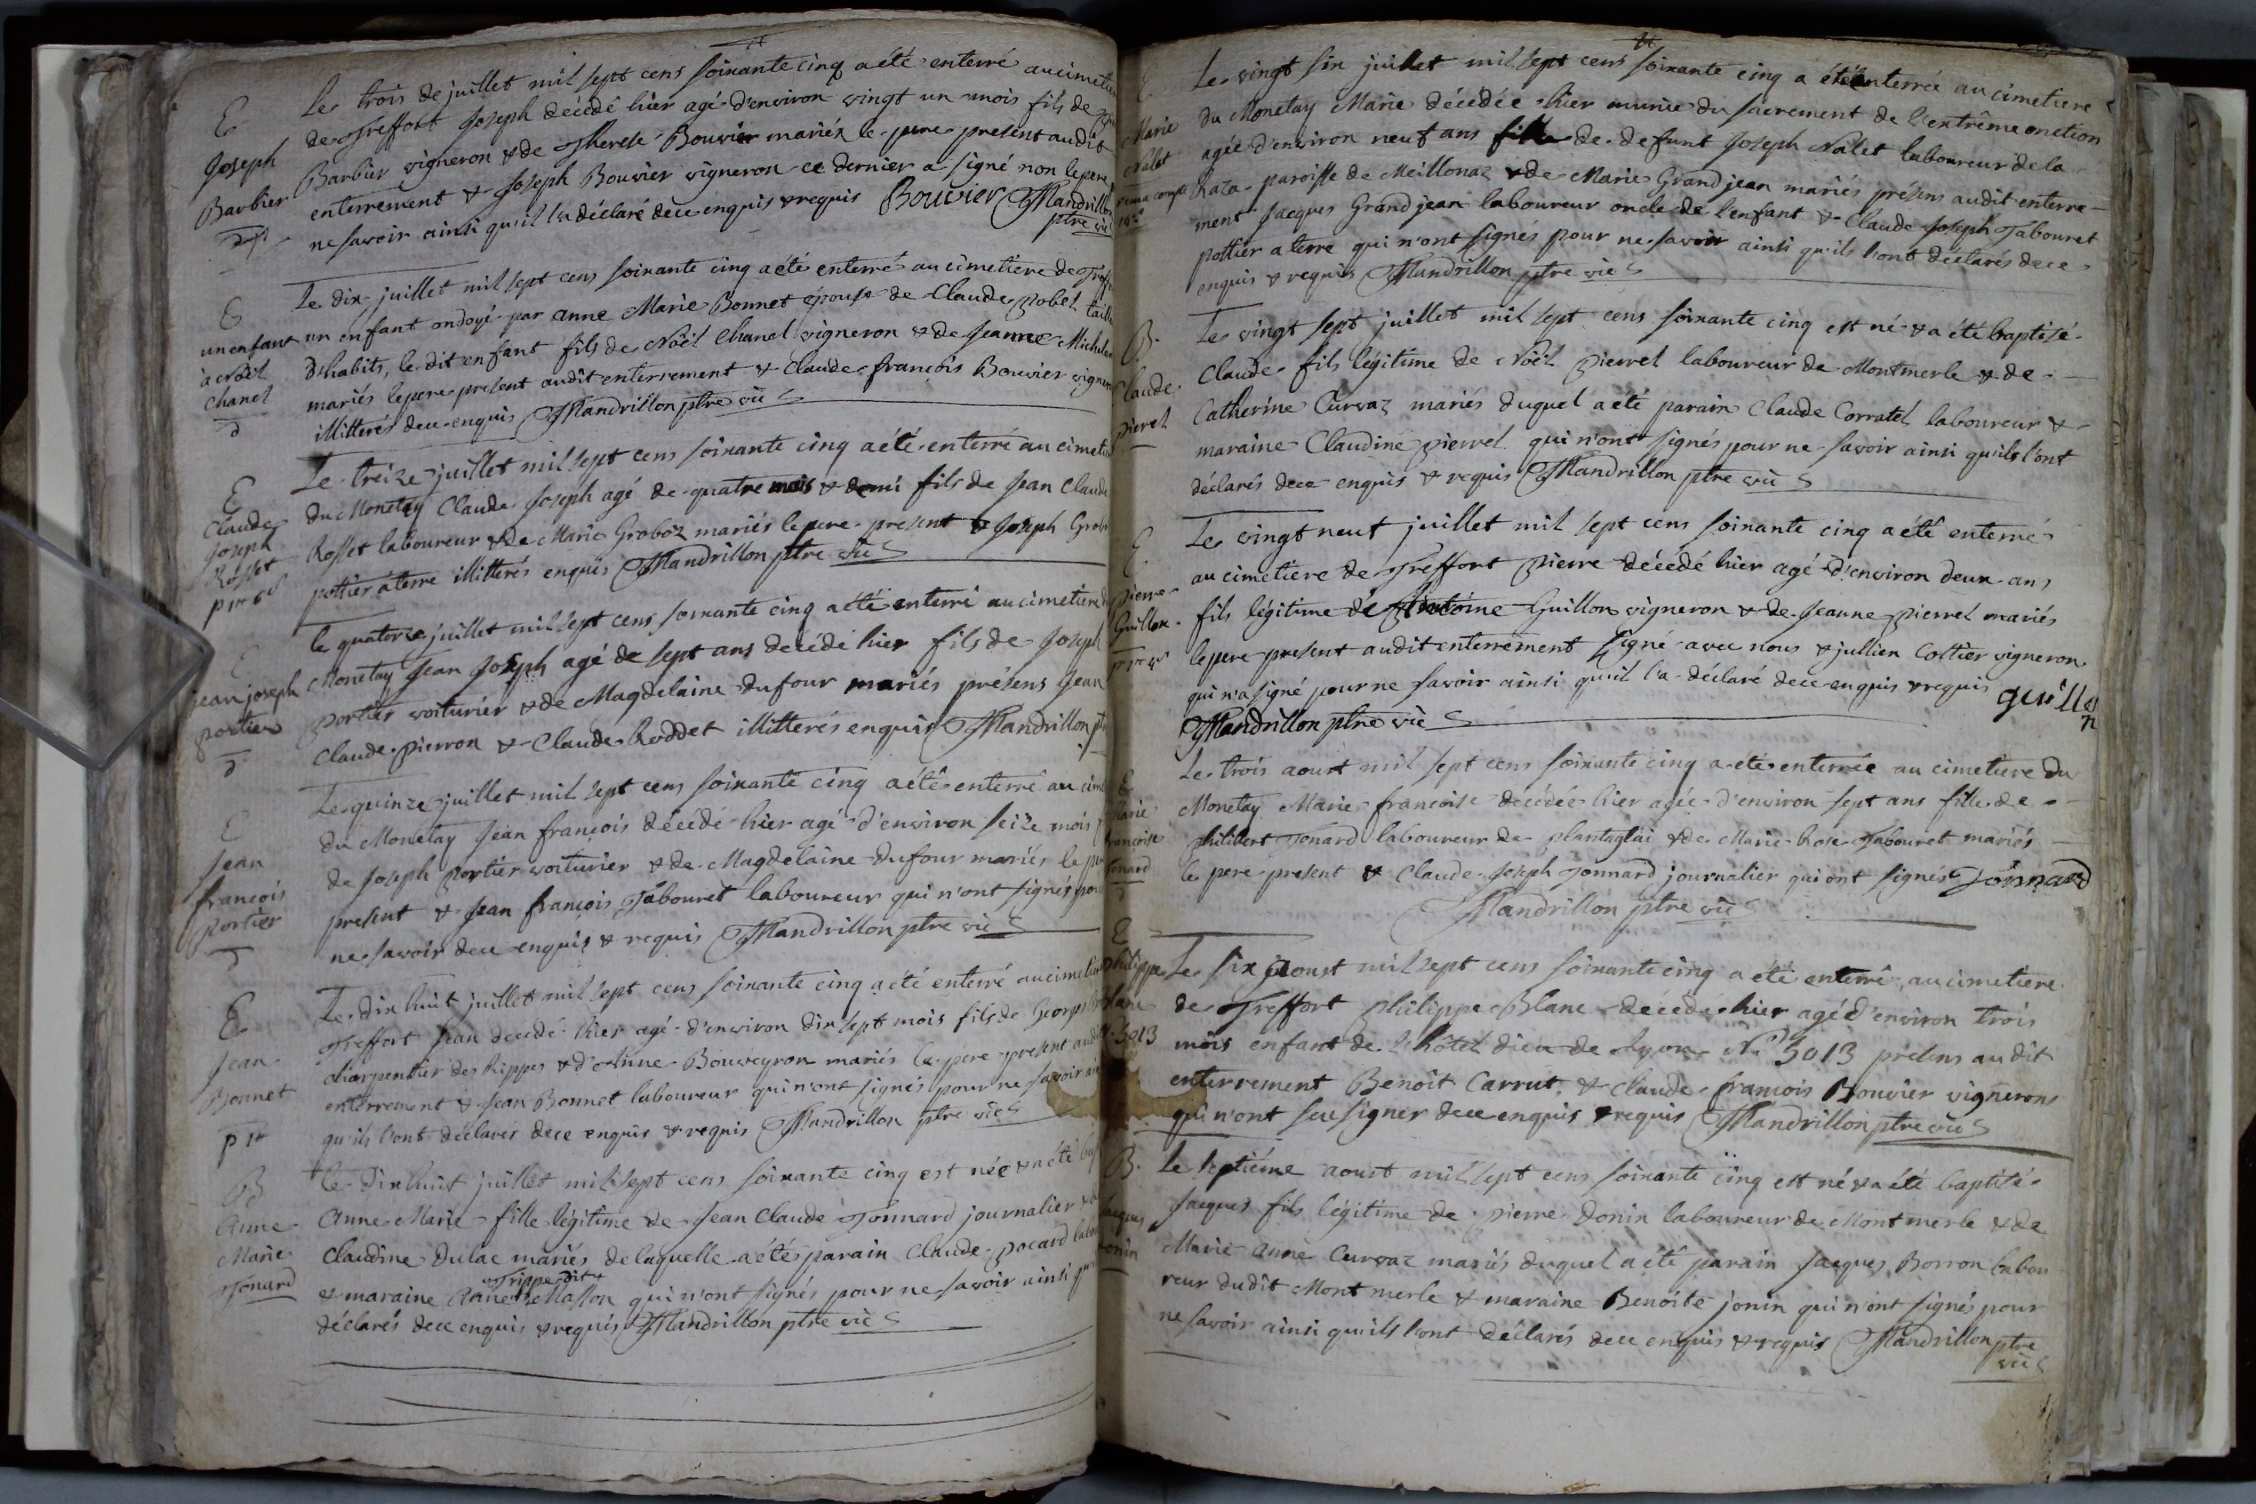 E
Joseph
Barbier
Le trois de juillet mil sept cens soixante cinq a été enterré au cimeti
de Treffort Joseph décédé hier agé d'environ vingt un mois fils de
Barbier vigneron & de Therese Bouvier mariés le pere present audit
enterrement & Joseph Bouvier vigneron ce dernier a signé non le pere
ne savoir ainsi qu'il l'a déclaré de ce enquis & requis Bouvier Mandrillon
ptre vic
E
un enfant
à Noël
Chanel
d
Le dix juillet mil sept cens soixante cinq a été enterré au cimetiere de Treff
un enfant ondoyé par anne Marie Bonnet épouse de Claude Pobel taill
d'habits, le dit enfant fils de Noël Chanel vigneron & de Jeanne Michel
mariés le pere present audit enterrement & Claude françois Bouvier vigner
illitterés de ce enquis Mandrillon ptre vic
E
Claude
Joseph
Rosset
Le treize juillet mil sept cens soixante cinq a été enterré au cimeti
du Monetay Claude Joseph agé de quatre mois & demi fils de Jean Claude
Rosset laboureur & de Marie Groboz mariés le pere present & Joseph Grob
pottier à terre illitterés enquis Mandrillon ptre vic
E
jean joseph
portier
d
le quatorze juillet mil sept cens soixante cinq a été enterré au cimetiere d
Monetay Jean Joseph agé de sept ans decédé hier fils de Joseph
portier voiturier & de Magdelaine Dufour mariés présens Jean
Claude Pierron & Claude Roddet illitterés enquis Mandrillon pt
E
Jean
françois
Portier
d
Le quinze juillet mil sept cens soixante cinq a été enterré au cim
du Monetay Jean françois décédé hier agé d'environ seize mois
de Joseph Portier voiturier & de Magdelaine Dufour mariés le pe
present & Jean françois Tabouret laboureur qui n'ont signés pou
ne savoir de ce enquis & requis Mandrillon ptre vic
E
Jean
Bonnet
Le dix huit juillet mil sept cens soixante cinq a été enterré au cimetie
Treffort Jean decédé hier agé d'environ dix sept mois fils de George
charpentier des Rippes & d'Anne Bouveyron mariés le pere present aud
enterrement & Jean Bonnet laboureur qui n'ont signés pour ne savoir ain
qu'ils l'ont déclarés de ce enquis & requis Mandrillon ptre vic
B
Anne
Marie
Tonard
le dix huit juillet mil sept cens soixante cinq est née & a été bap
Anne Marie fille légitime de Jean Claude Tonnard journalier & d
Claudine Dulac mariés de laquelle a été parain Claude Pocard labou
Trippe dit
& maraine Anne Masson qui n'ont signés pour ne savoir ainsi qu
déclarés de ce enquis & requis Mandrillon ptre vic
E
Marie
Nalet
Le vingt six juillet mil sept cens soixante cinq a été enterrée au cimetiere
du Monetay Marie décédée hier munie du sacrement de l'extrême onction
agée d'environ neuf ans fille de defunt Joseph Nalet laboureur de la
haza paroisse de Meillonaz & de Marie Grandjean mariés présens audit enterre-
ment Jacques Grandjean laboureur oncle de l'enfant & Claude Joseph Tabouret
pottier a terre qui n'ont signés pour ne savoir ainsi qu'ils l'ont déclarés de ce
enquis & requis Mandrillon ptre vic
B.
Claude
Pierrel
Le vingt sept juillet mil sept cens soixante cinq est né & a été baptisé
Claude fils légitime de Noël Pierrel laboureur de Montmerle & de
Catherine Curvaz mariés duquel a été parain Claude Corratel laboureur &
maraine Claudine Pierrel qui n'ont signés pour ne savoir ainsi qu'ils l'ont
déclarés de ce enquis & requis Mandrillon ptre vic
E.
Pierre
Guillon
Le vingt neuf juillet mil sept cens soixante cinq a été enterré
au cimetiere de Treffort Pierre décédé hier agé d'environ deux ans
fils légitime de Antoine Guillon vigneron & de Jeanne Pierrel mariés
le pere present audit enterrement signé avec nous & jullien Cottier vigneron
qui n'a signé pour ne savoir ainsi qu'il l'a déclaré de ce enquis & requis guillon
Mandrillon ptre vic
E
Marie
francoise
Tonard
Le trois aoust mil sept cens soixante cinq a été enterrée au cimetiere du
Monetay Marie francoise decédée hier agée d'environ sept ans fille de
philibert Tonard laboureur de plantaglai & de Marie Rose Tabouret mariés
le pere present & Claude Joseph Tonnard journalier qui ont signés Tonnard
Mandrillon ptre vic
E
Philippe
Blanc
N. 5013
Le six aoust mil sept cens soixante cinq a été enterré au cimetiere
de Treffort philippe Blanc decédé hier agé d'environ trois
mois enfant de l'hôtel dieu de Lyon N° 5013 présens au dit
enterrement Benoît Carrut & Claude françois Bouvier vignerons
qui n'ont seu signer de ce enquis & requis Mandrillon ptre vic
B.
Jacques
Donin
Le septiéme aoust mil sept cens soixante cinq est né & a été baptisé
Jacques fils légitime de pierre Donin laboureur de Montmerle & de
Marie Anne Curvaz mariés duquel a été parain Jacques Borron labou
reur du dit Montmerle & maraine Benoîte jonin qui n'ont signés pour
ne savoir ainsi qu'ils l'ont déclarés de ce enquis & requis Mandrillon ptre
vic